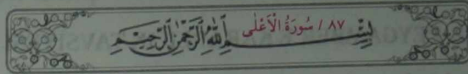 ٨٧ / سُورَةُ الْأَعْلٰى
بِسْــــمِ اللّٰهِ الرَّحْمٰنِ الرَّحِيمِ